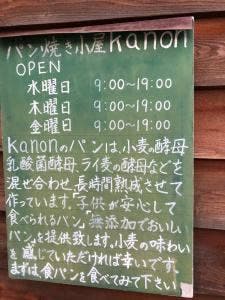 パン焼き小屋 kanon
OPEN
水曜日 9:00~19:00
木曜日 9:00~19:00
金曜日 9:00~19:00
kanonのパンは、小麦の酵母
乳酸菌酵母、ライ麦の酵母などを
混ぜ合わせ、長時間熟成させて
作っています。「子供が安心して
食べられるパン」「無添加でおいしい
パン」を提供致します。小麦の味わい
を感じていただければ幸いです。
まずは、食パンを食べてみて下さい